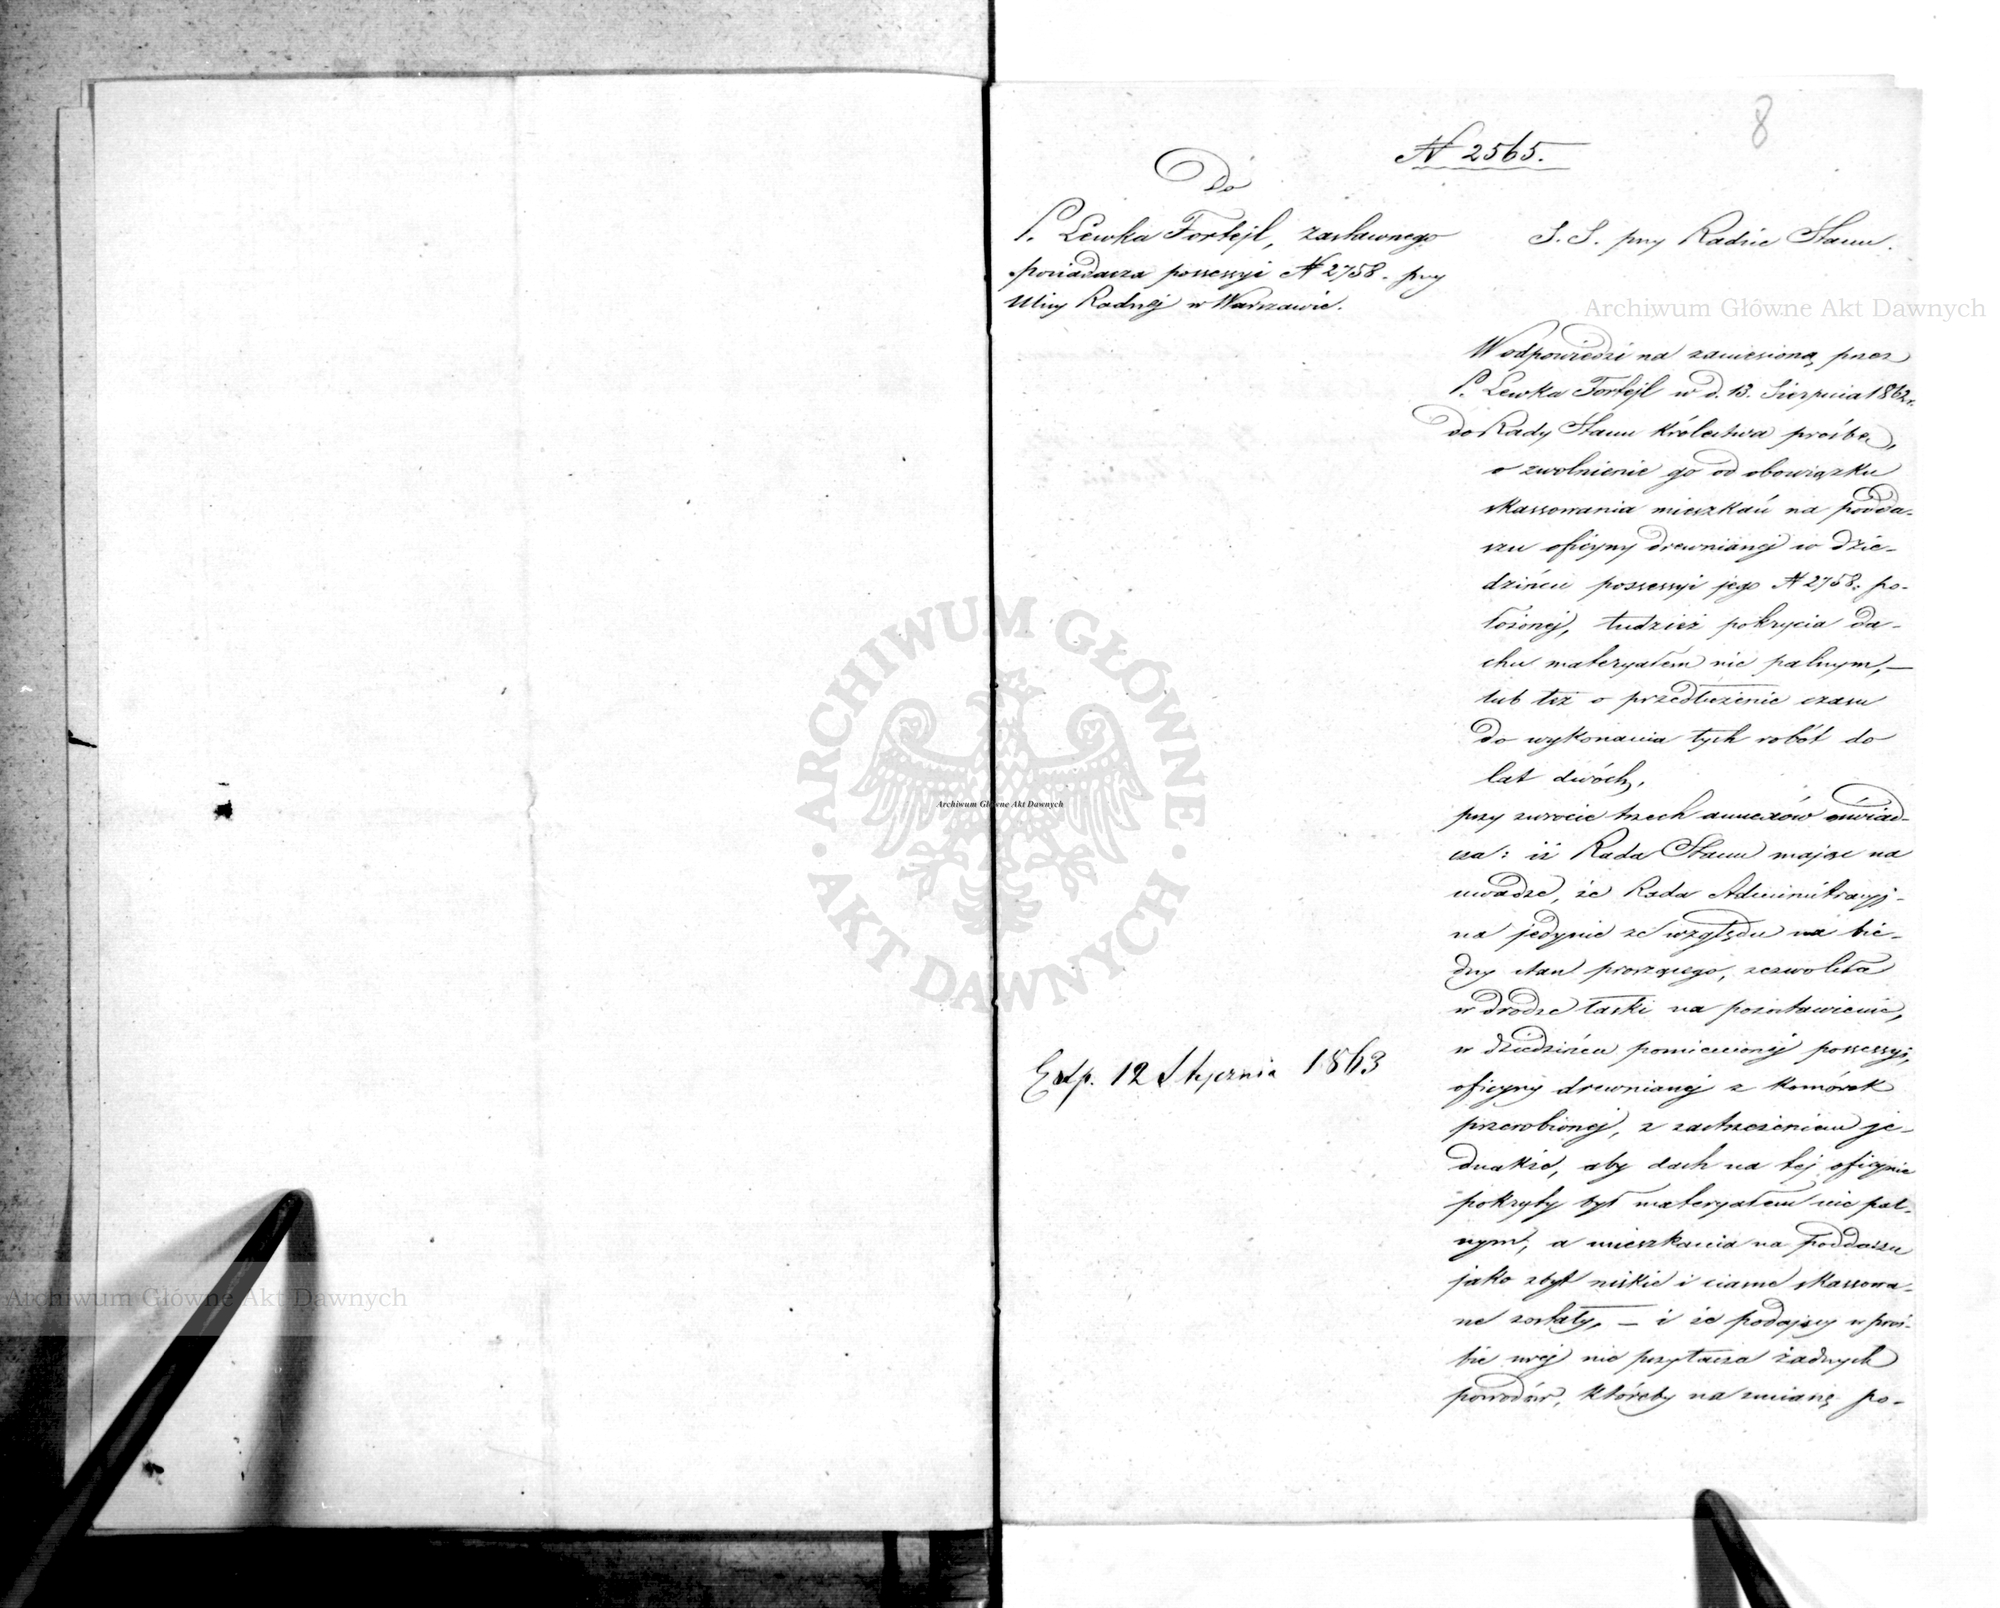 8
N 2565.
Do
P. Lewka Fortejl, zastawnego
posiadacza possessyi N 2758. przy
Ulicy Radnej w Warszawie.
S. S. przy Radzie Stanu.
W odpowiedzi na zaniesioną przez
P. Lewka Fortejl w d. 13. Sierpnia 1862 r.
do Rady Stanu Królestwa prośbę,
o zwolnienie go od obowiązku
skassowania mieszkań na podda-
szu oficyny drewnianej w dzie-
dzińcu possessyi jego N 2758. po-
łożonej, tudzież pokrycia da-
chu materyałem nie palnym, —
lub też o przedłużenie czasu
do wykonania tych robót do
lat dwóch,
przy zwrocie trzech annexów oświad-
cza: iż Rada Stanu mając na
uwadze, że Rada Administracyj-
na jedynie ze względu na bie-
dny stan proszącego, zezwoliła
w drodze łaski na pozostawienie,
w dziedzińcu pomienionej possessyi,
oficyny drewnianej z komórek
przerobionej, z zastrzeżeniem je-
dnakże, aby dach na tej oficynie
pokryty był materyałem nie pal-
nym, a mieszkania na poddaszu
jako zbyt niskie i ciasne skassowa-
ne zostały, — i że podający w proś-
bie swej nie przytacza żadnych
powodów, któreby na zmianę po-
Exp. 12 Stycznia 1863
Archiwum Główne Akt Dawnych
ARCHIWUM GŁÓWNE · AKT DAWNYCH ·
Archiwum Główne Akt Dawnych
Archiwum Główne Akt Dawnych